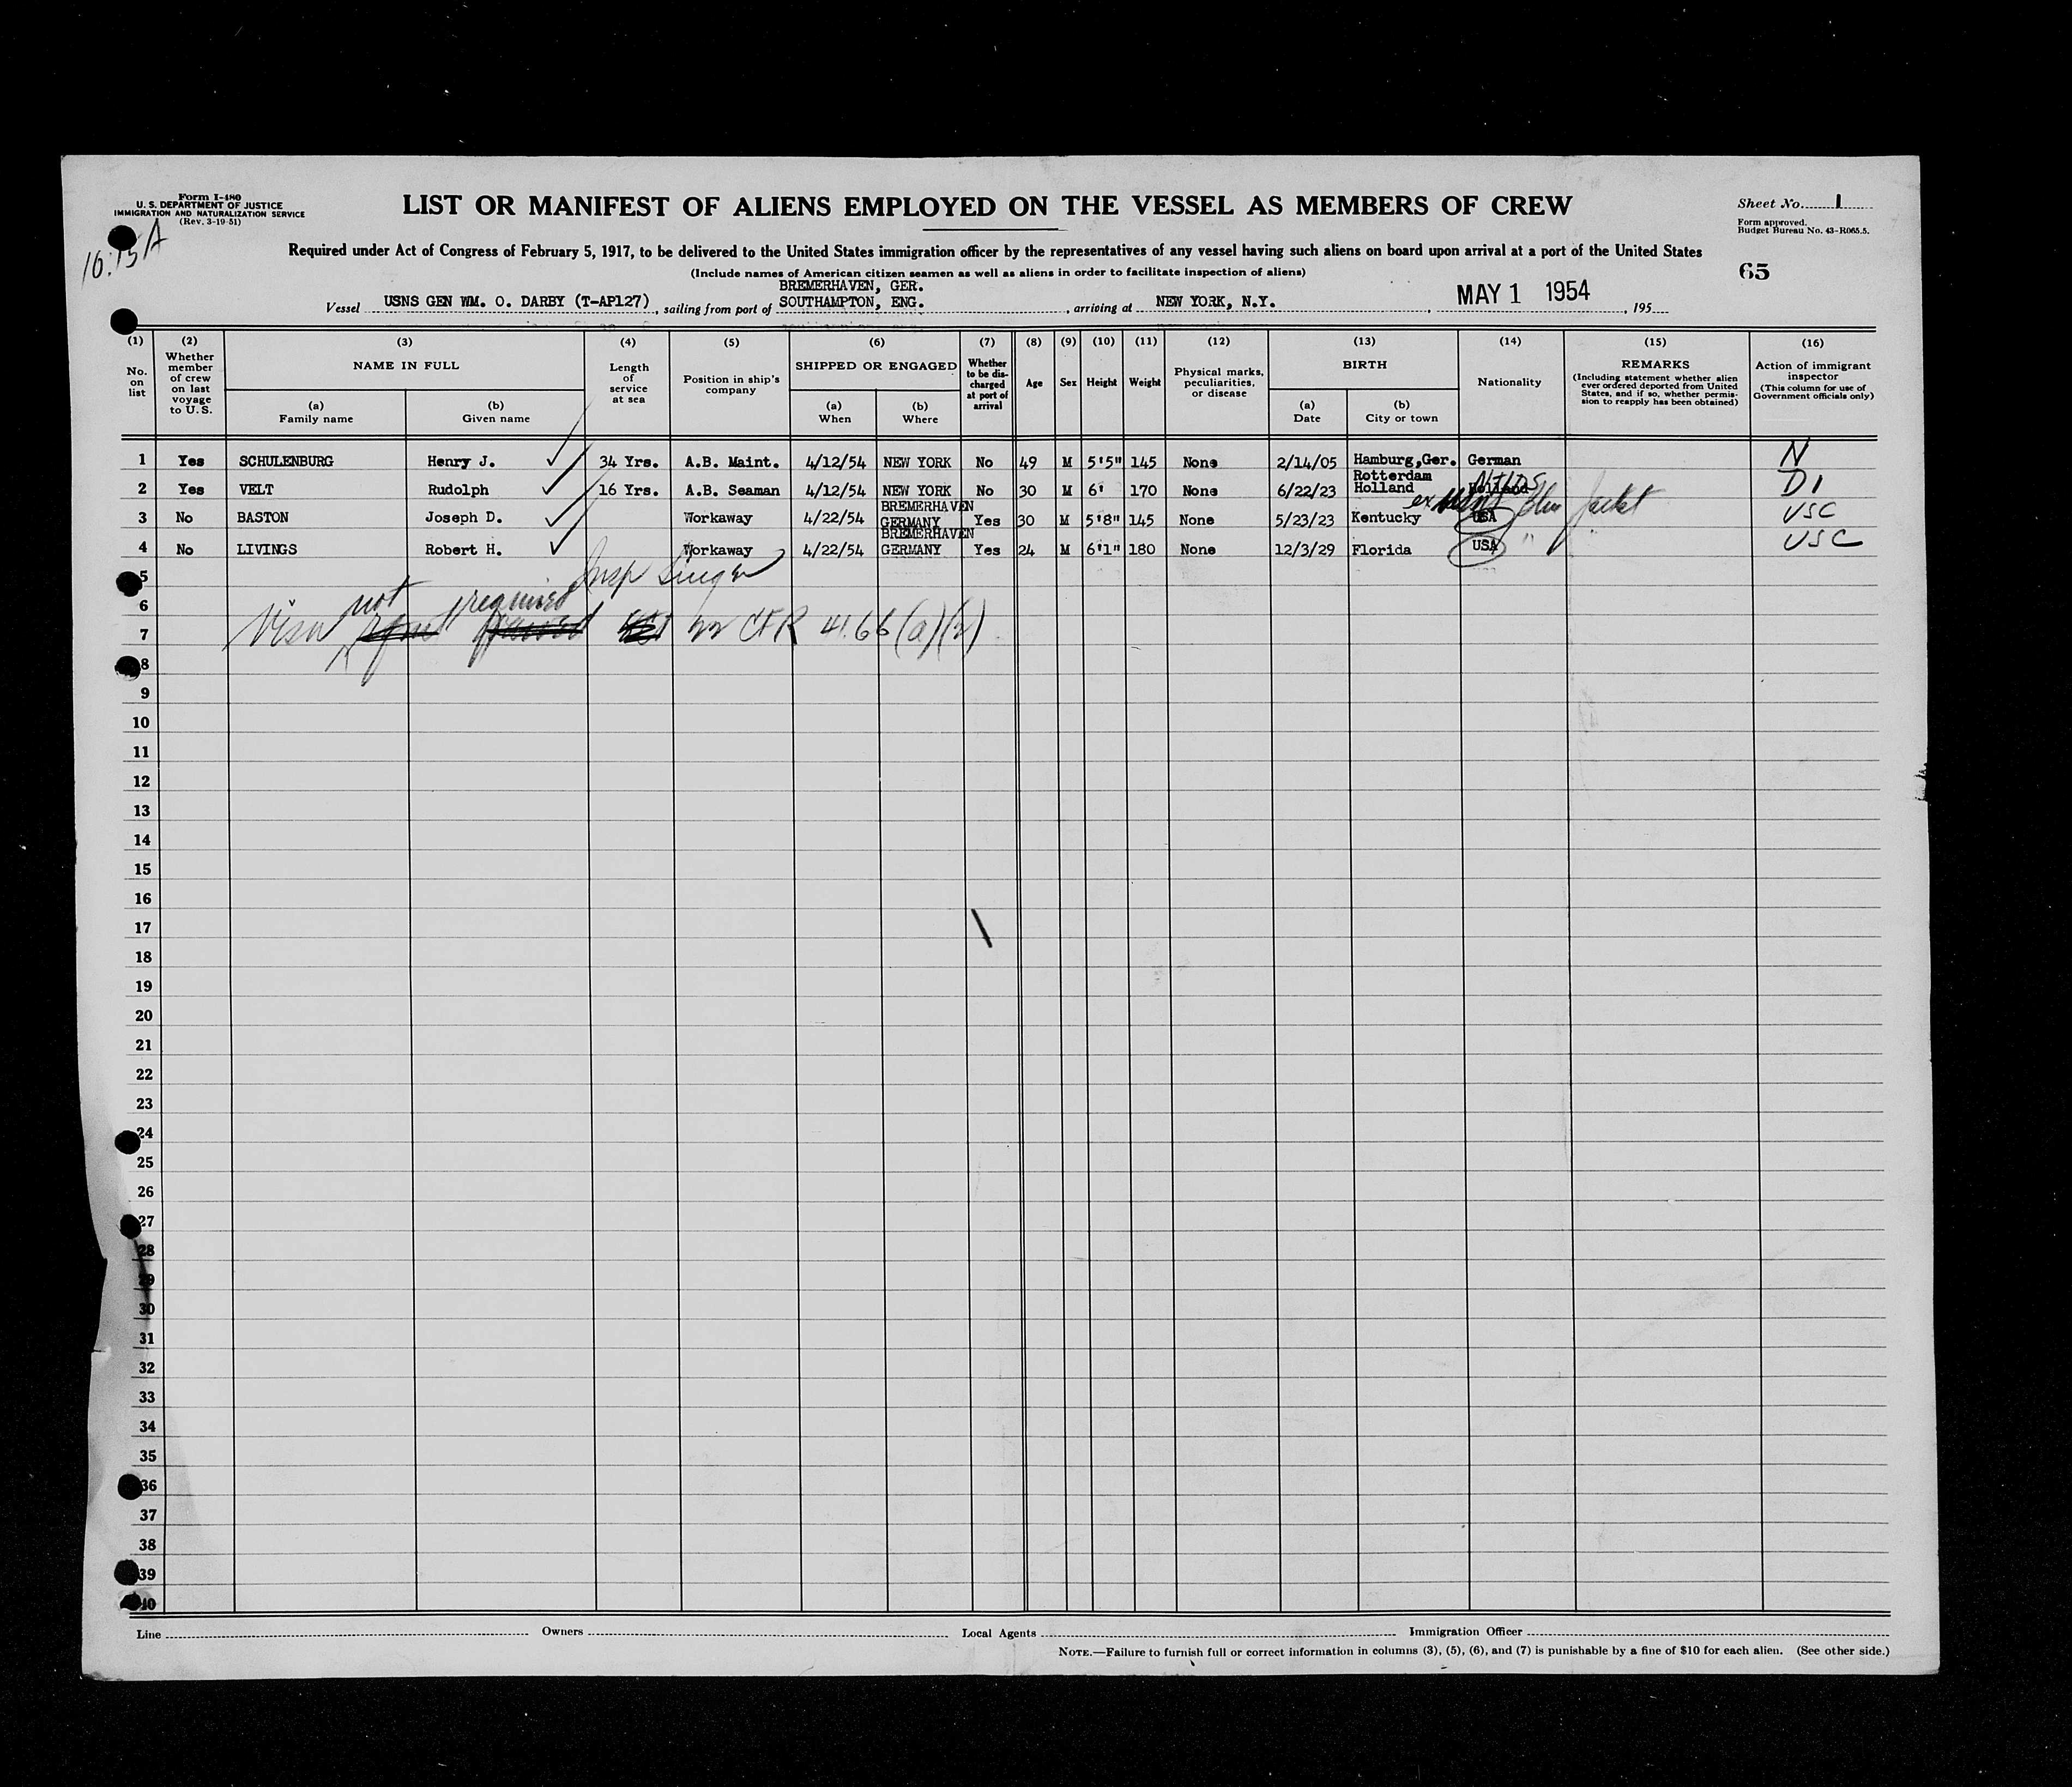 Form I-480
U. S. DEPARTMENT OF JUSTICE
IMMIGRATION AND NATURALIZATION SERVICE
(Rev. 3-19-51)
10:15 A
LIST OR MANIFEST OF ALIENS EMPLOYED ON THE VESSEL AS MEMBERS OF CREW
Sheet No. 1
Form approved.
Budget Bureau No. 43-R065.5.
Required under Act of Congress of February 5, 1917, to be delivered to the United States immigration officer by the representatives of any vessel having such aliens on board upon arrival at a port of the United States
(Include names of American citizen seamen as well as aliens in order to facilitate inspection of aliens)
65
BREMERHAVEN, GER.
Vessel USNS GEN WM. O. DARBY (T-AP127), sailing from port of SOUTHAMPTON, ENG., arriving at NEW YORK, N.Y., MAY 1 1954, 195
(1) (2) (3) (4) (5) (6) (7) (8) (9) (10) (11) (12) (13) (14) (15) (16)
No. on list
Whether member of crew on last voyage to U.S.
NAME IN FULL
(a) Family name
(b) Given name
Length of service at sea
Position in ship's company
SHIPPED OR ENGAGED
(a) When
(b) Where
Whether to be discharged at port of arrival
Age
Sex
Height
Weight
Physical marks, peculiarities, or disease
BIRTH
(a) Date
(b) City or town
Nationality
REMARKS
(Including statement whether alien ever ordered deported from United States, and if so, whether permission to reapply has been obtained)
Action of immigrant inspector
(This column for use of Government officials only)
1 Yes SCHULENBURG Henry J. ✓ 34 Yrs. A.B. Maint. 4/12/54 NEW YORK No 49 M 5'5" 145 None 2/14/05 Hamburg,Ger. German N
2 Yes VELT Rudolph ✓ 16 Yrs. A.B. Seaman 4/12/54 NEW YORK No 30 M 6' 170 None 6/22/23 Rotterdam Holland Holland D1
3 No BASTON Joseph D. ✓ Workaway 4/22/54 BREMERHAVEN GERMANY Yes 30 M 5'8" 145 None 5/23/23 Kentucky USA USC
4 No LIVINGS Robert H. ✓ Workaway 4/22/54 BREMERHAVEN GERMANY Yes 24 M 6'1" 180 None 12/3/29 Florida USA " USC
5 Insp Singer
6 not required
7 Visa 22 CFR 41.66(a)(2)
8
9
10
11
12
13
14
15
16
17
18
19
20
21
22
23
24
25
26
27
28
29
30
31
32
33
34
35
36
37
38
39
40
Line Owners Local Agents Immigration Officer
NOTE.—Failure to furnish full or correct information in columns (3), (5), (6), and (7) is punishable by a fine of $10 for each alien. (See other side.)